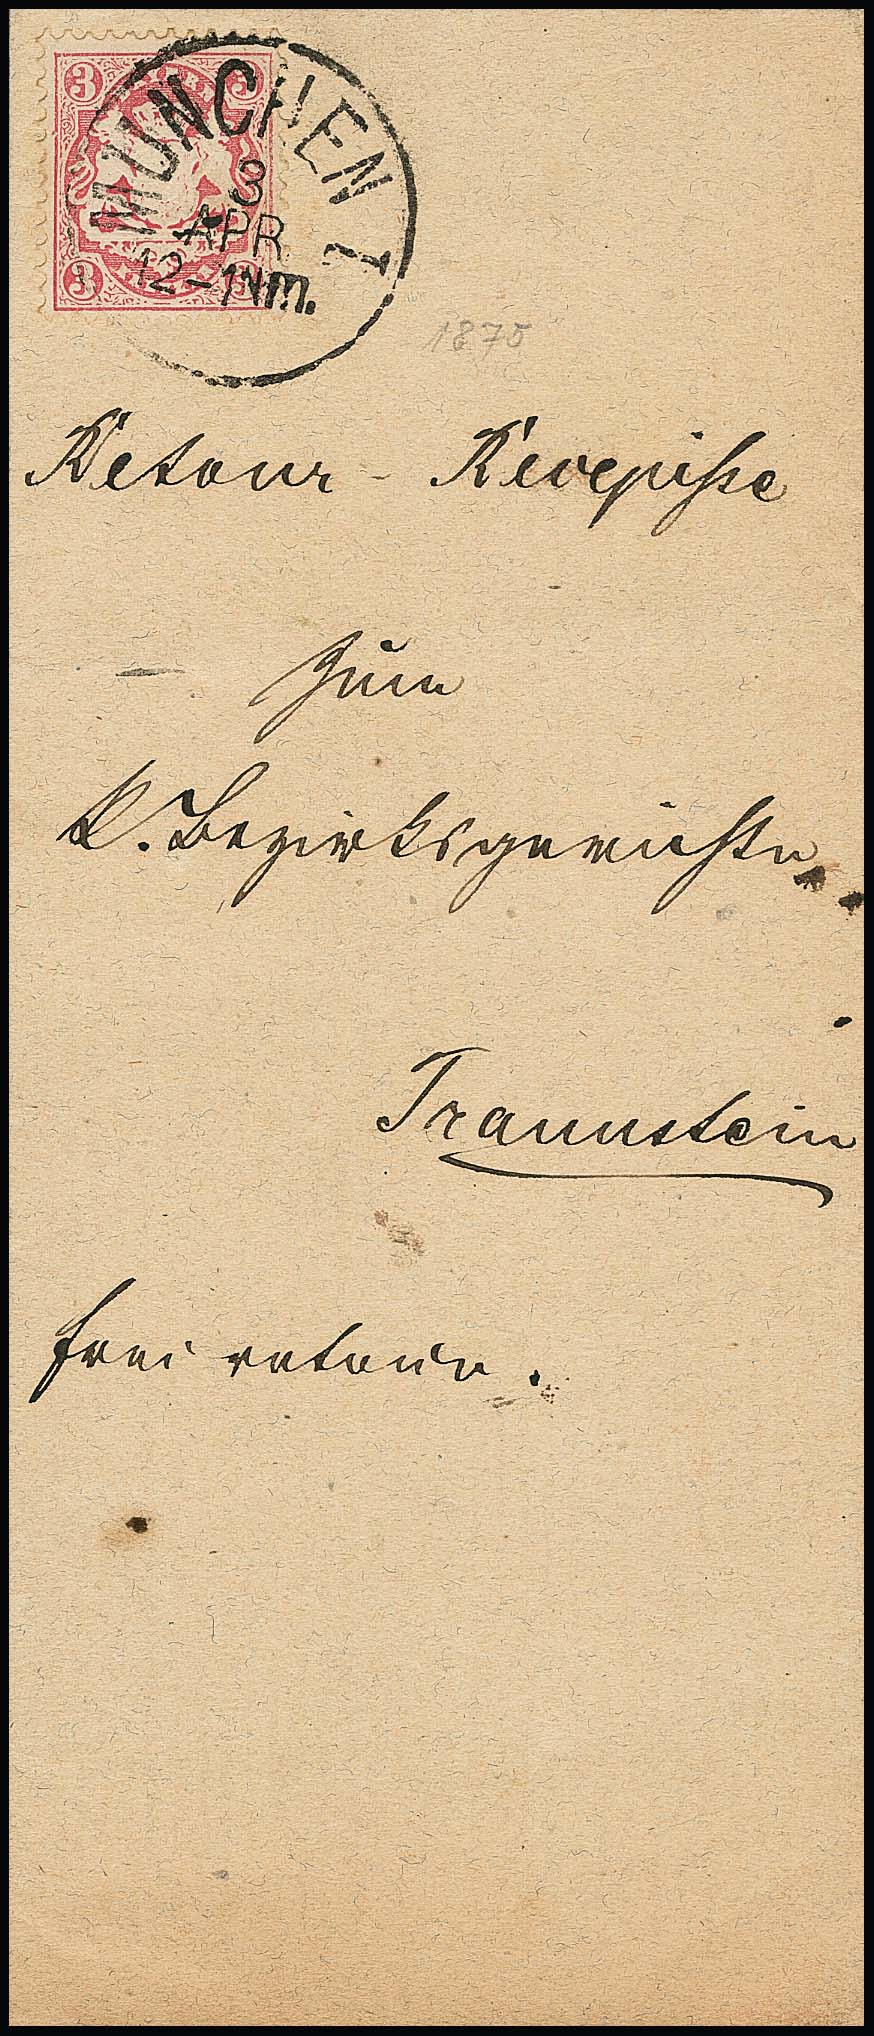 3 3
MÜNCHEN I
3
APR
12-1Nm.
3 3
1875
Retour - Recepisse
zum
k. Bezirksgerichte
Traunstein
frei retour.